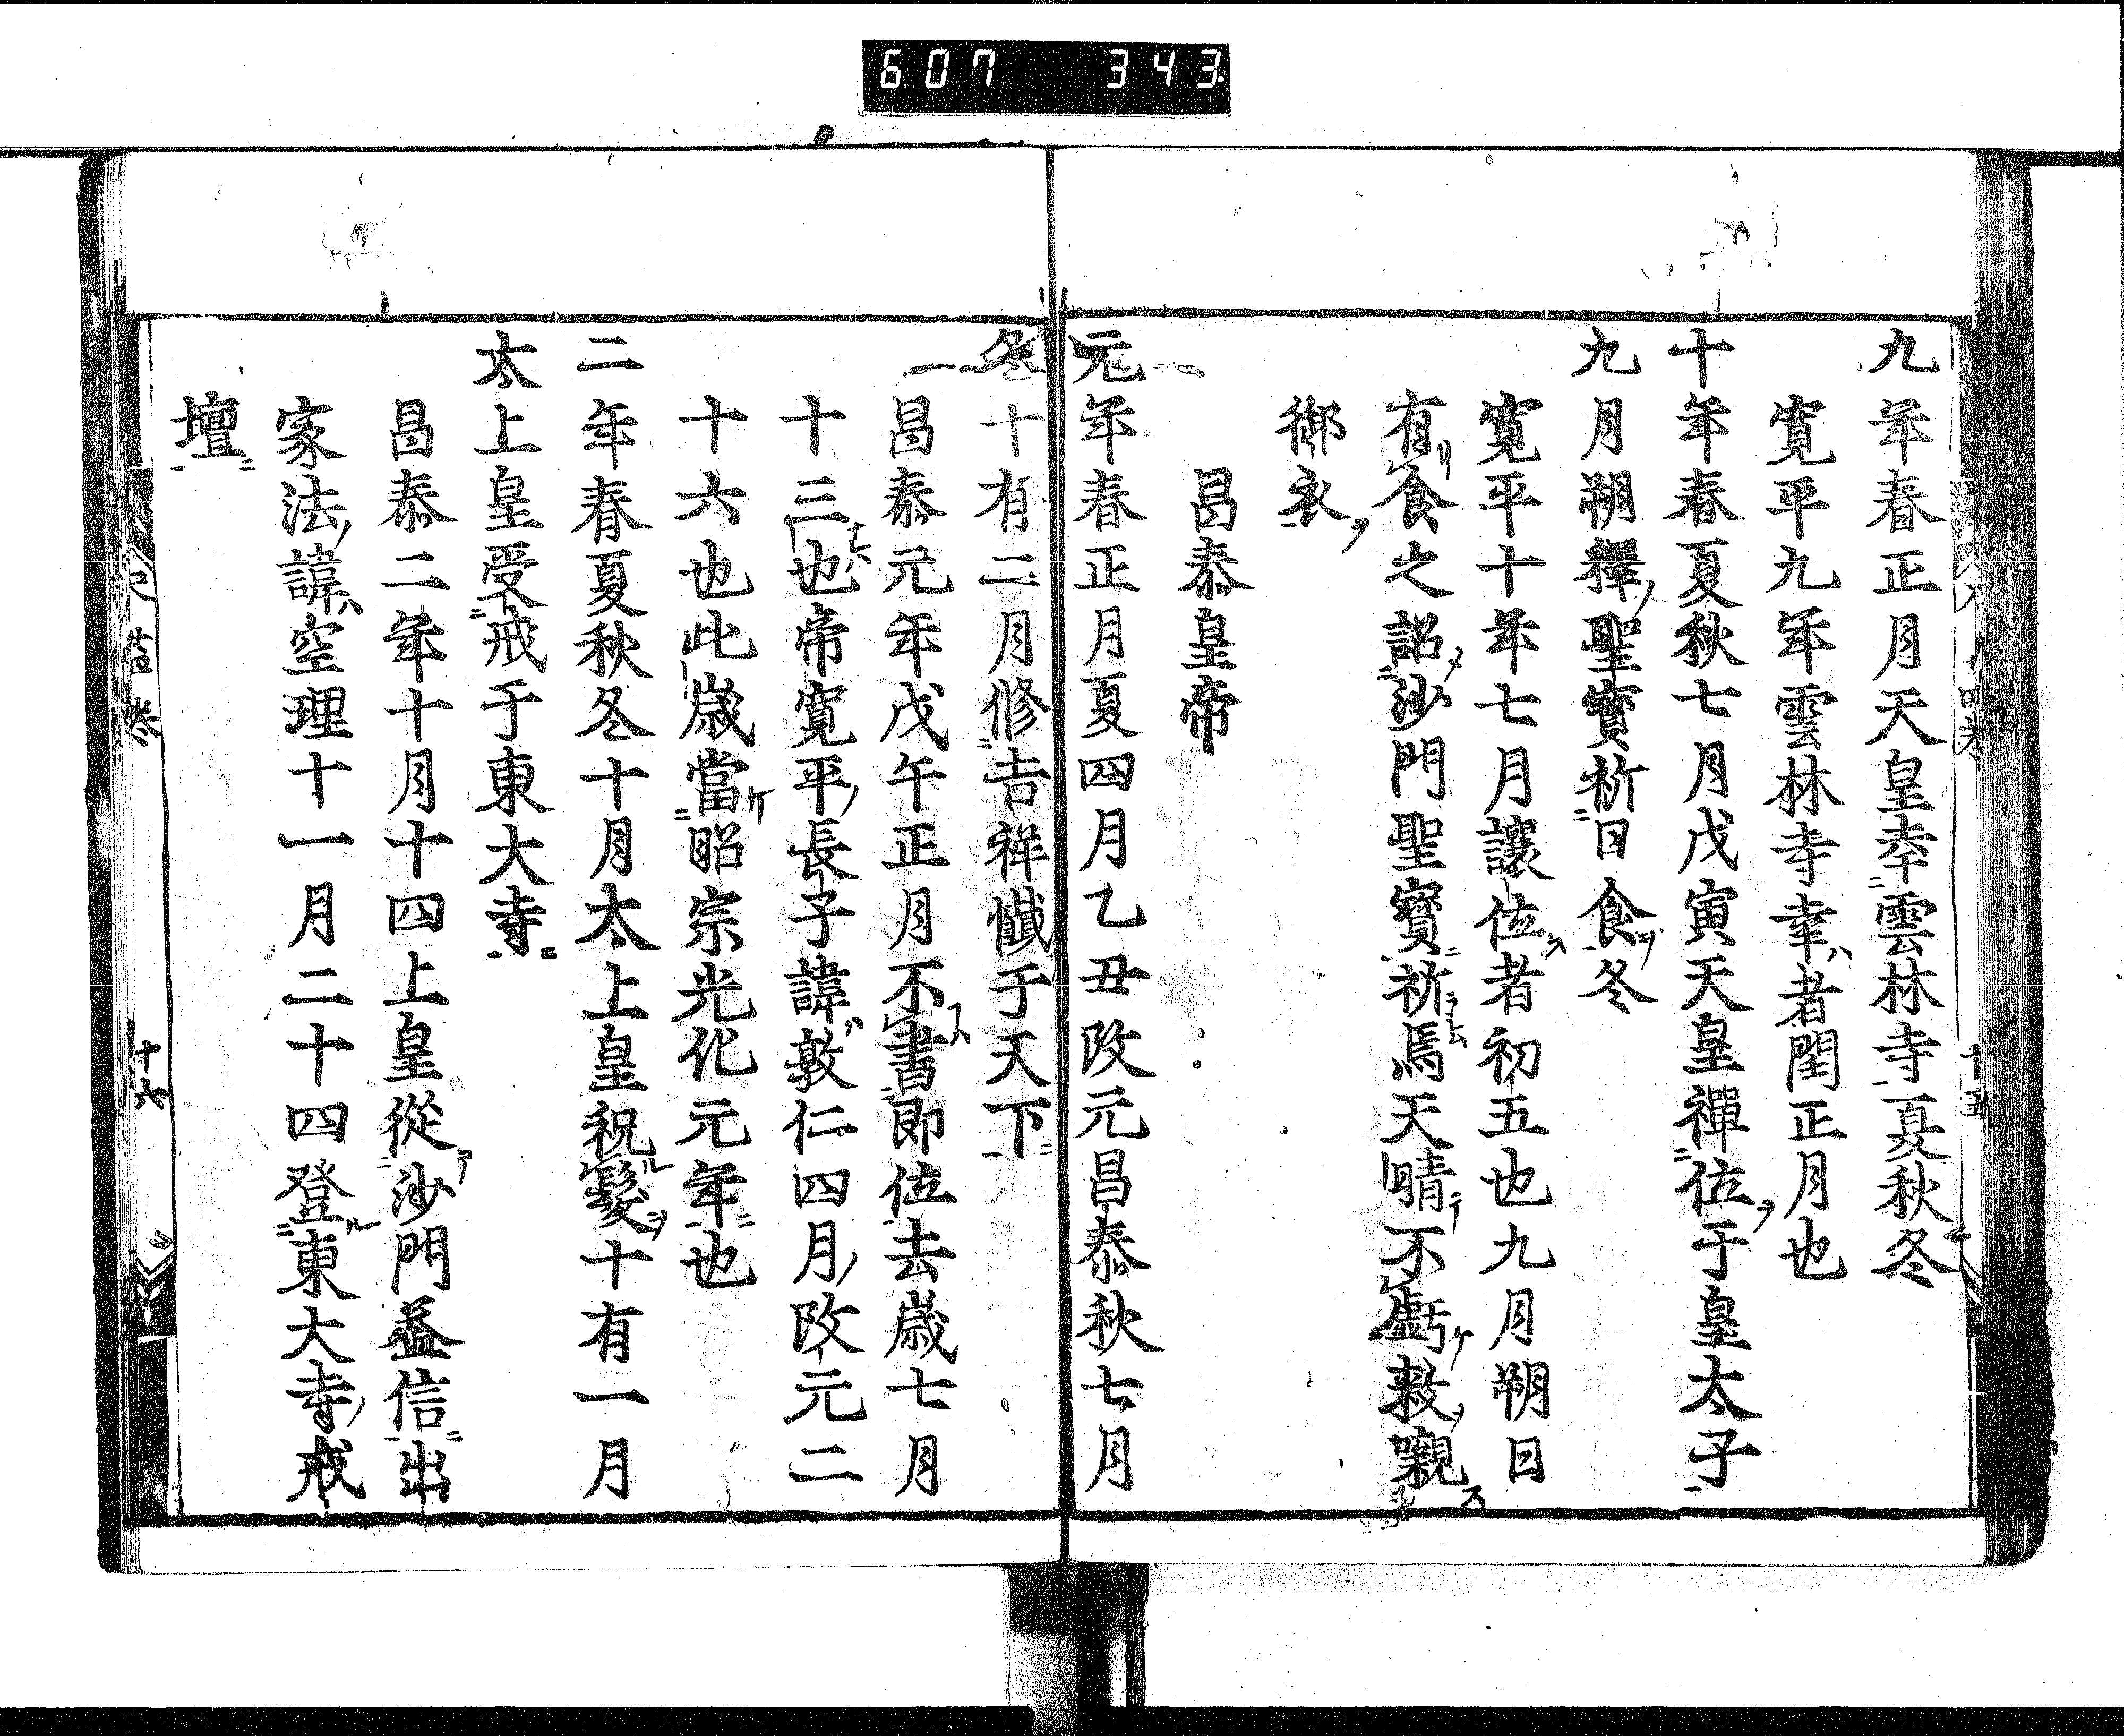 607 343
九年春正月天皇幸雲林寺夏秋冬
寛平九年雲林寺幸者閏正月也
十年春夏秋七月戊寅天皇禪位于皇太子
九月朔釋聖寶祈日食冬
寛平十年七月讓位者初五也九月朔日
有食之詔沙門聖寶祈焉天晴不虧敕親
御衣
昌泰皇帝
元年春正月夏四月乙丑改元昌泰秋七月
冬十有二月修吉祥懺于天下
昌泰元年戊午正月不書即位去歳七月
十三也帝寛平長子諱敦仁四月改元二
十六也此歳當昭宗光化元年也
二年春夏秋冬十月太上皇祝髮十有一月
太上皇受戒于東大寺
昌泰二年十月十四上皇從沙門益信出
家法諱空理十一月二十四登東大寺戒
壇
十六